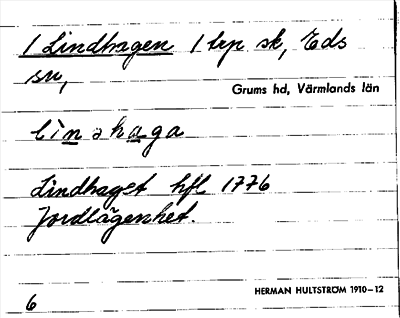 1 Lindhagen 1 trp sk, Eds
sn,
Grums hd, Värmlands län
lìnəhaga
Lindhaget hfl 1776
Jordlägenhet.
HERMAN HULTSTRÖM 1910–12
6